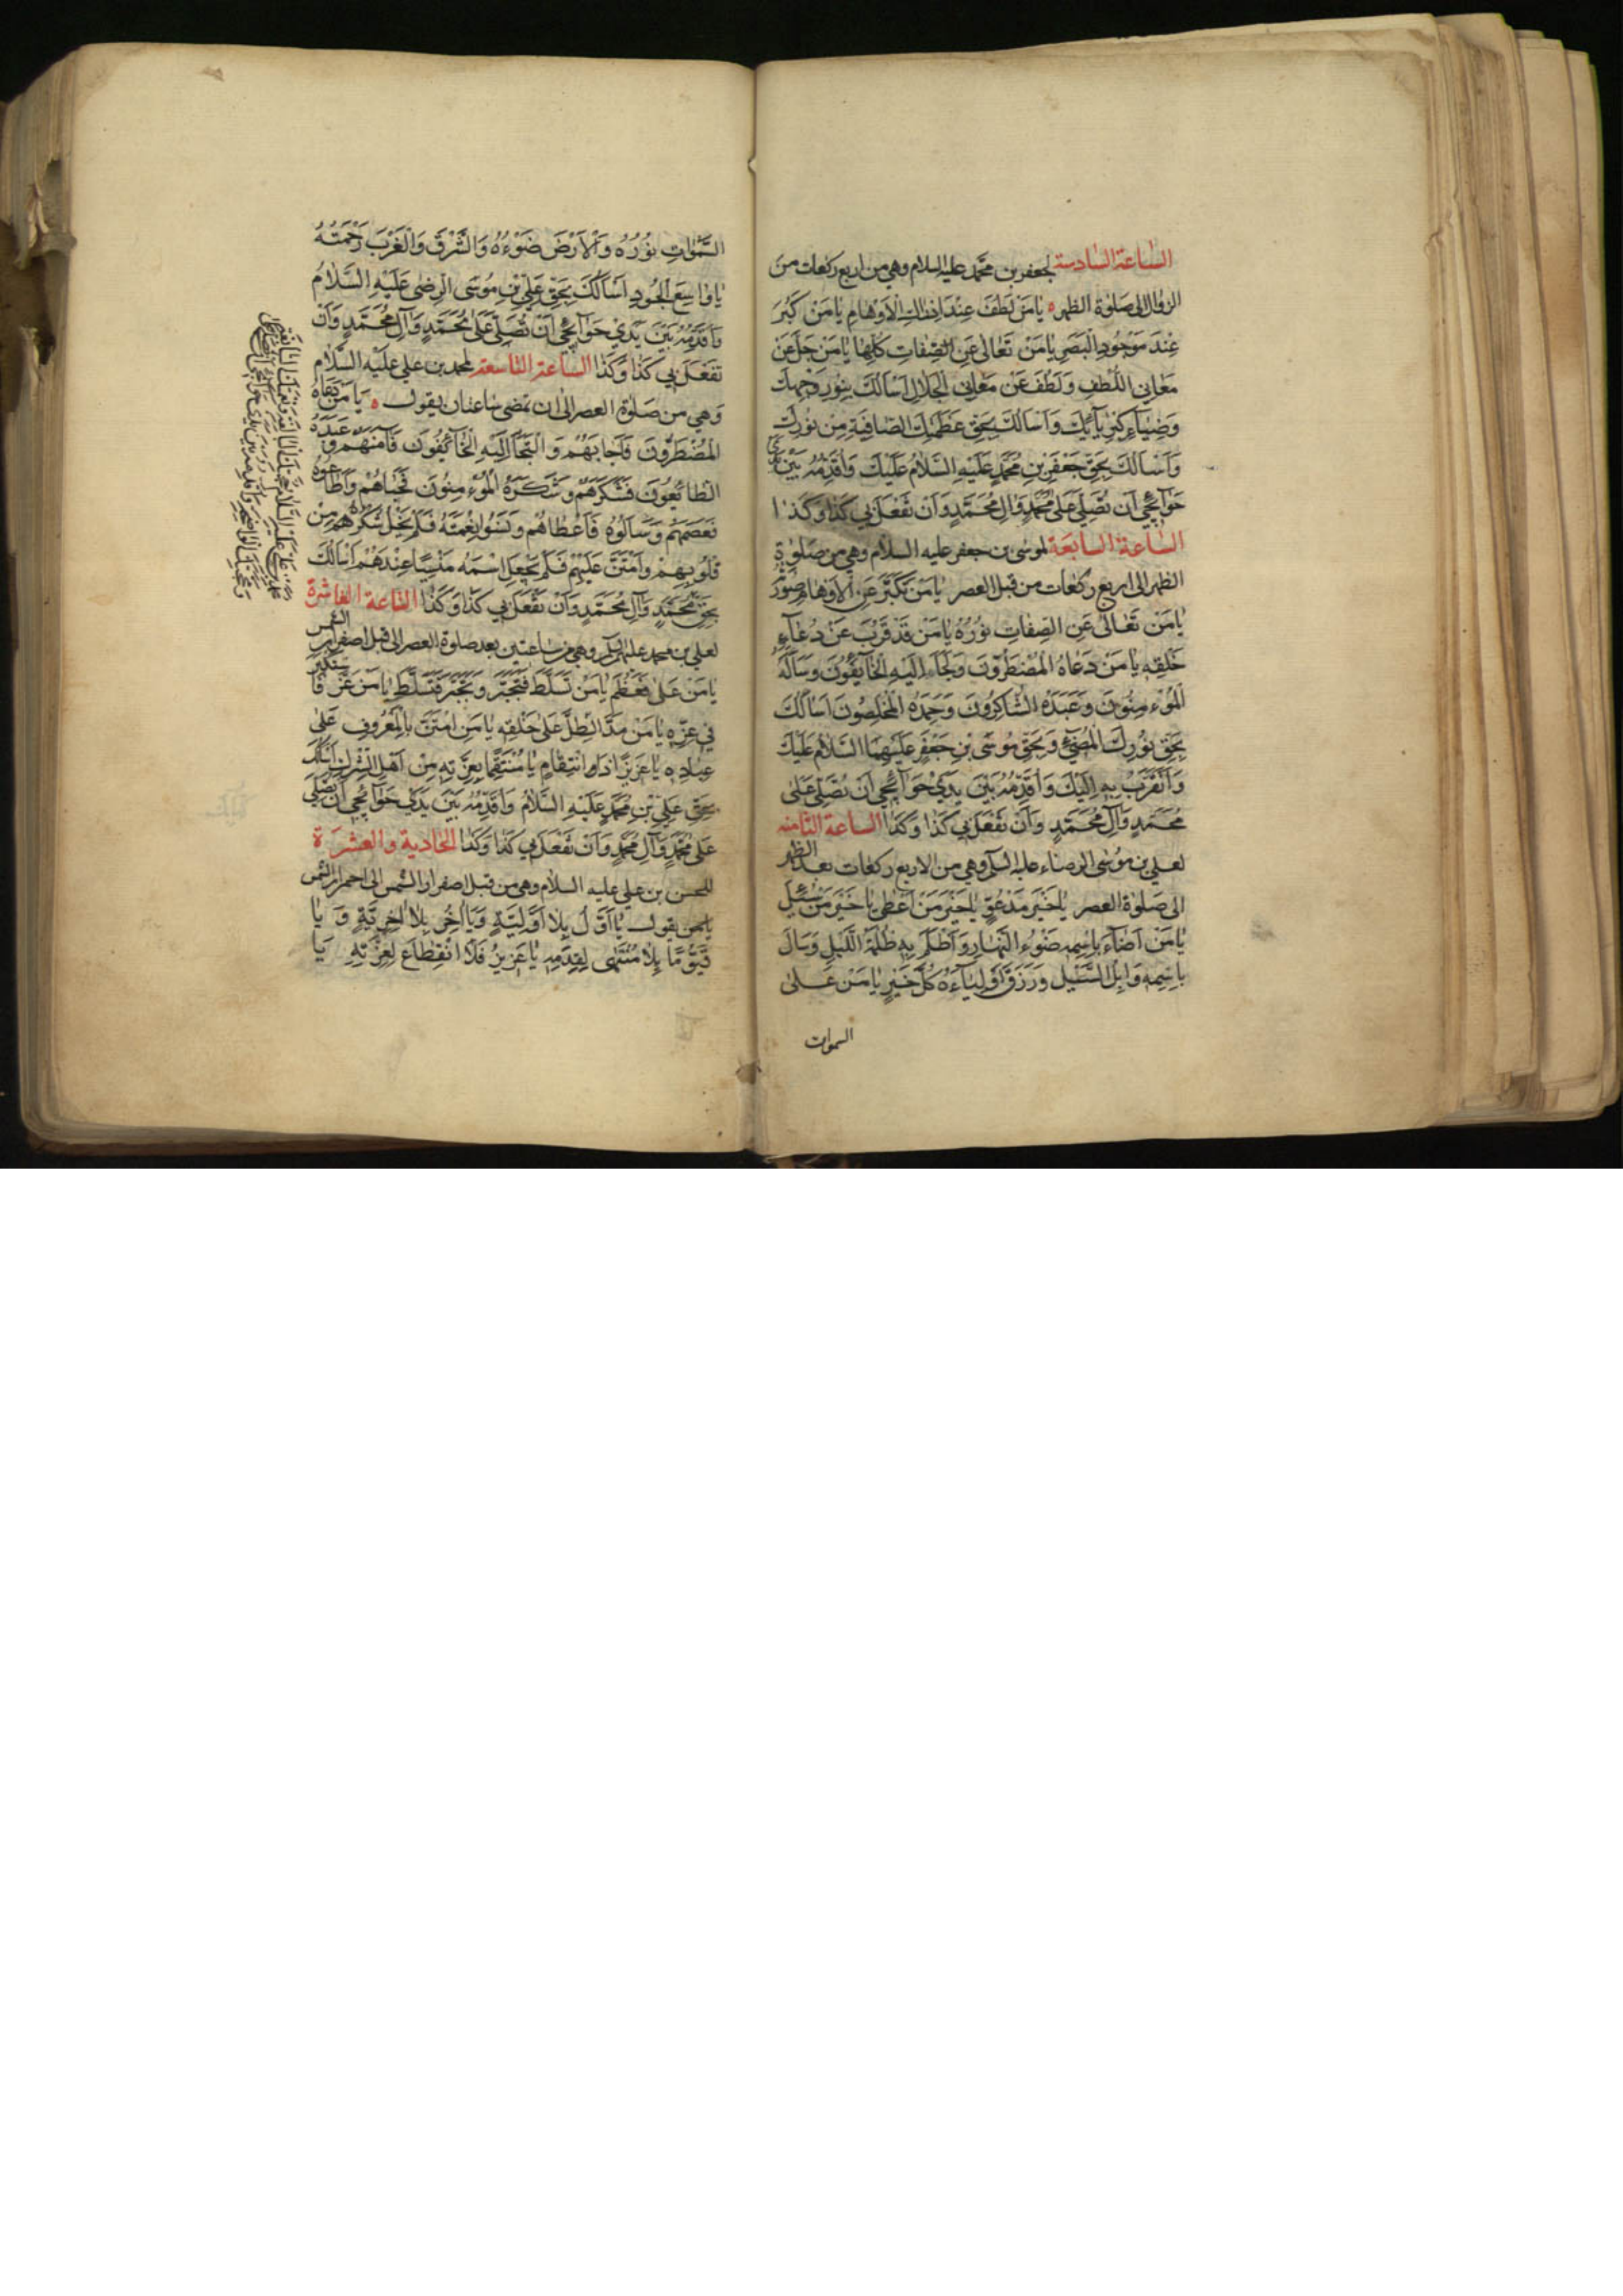 الساعة السادسة لجعفر بن محمد عليه السلام وهي من اربع ركعات من
الزوال الى صلوة الظهر ه يا مَنْ لَطُفَ عِنْدَ اِدْراكِ الْاَوْهامِ يا مَنْ كَبُرَ
عِنْدَ مَوْجُودِ الْبَصَرِ يا مَنْ تَعالى عَنِ الصِّفاتِ كُلِّها يا مَنْ جَلَّ عَنْ
مَعانِي اللُّطْفِ وَلَطُفَ عَنْ مَعانِي الْجَلالِ اَسْاَلُكَ بِنُورِ وَجْهِكَ
وَضِياءِ كِبْرِيآئِكَ وَاَسْاَلُكَ بِحَقِّ عَظَمَتِكَ الصّافِيَةِ مِنْ نُورِكَ
وَاَسْاَلُكَ بِحَقِّ جَعْفَرِ بْنِ مُحَمَّدٍ عَلَيْهِ السَّلامُ عَلَيْكَ وَاُقَدِّمُهُ بَيْنَ يَدَيْ
حَوآئِجي اَنْ تُصَلِّيَ عَلى مُحَمَّدٍ وَالِ مُحَمَّدٍ وَاَنْ تَفْعَلَ بي كَذا وَكَذا
الساعة السابعة لموسى بن جعفر عليه السلام وهي من صلوة
الظهر الى اربع ركعات من قبل العصر يا مَنْ تَكَبَّرَ عَنِ الْاَوْهامِ صُورَتُهُ
يا مَنْ تَعالى عَنِ الصِّفاتِ نُورُهُ يا مَنْ قَدْ قَرُبَ عَنْ دُعآءِ
خَلْقِهِ يا مَنْ دَعاهُ الْمُضْطَرُّونَ وَلَجَاَ اِلَيْهِ الْخآئِفُونَ وَسَاَلَهُ
الْمُؤْمِنُونَ وَعَبَدَهُ الشّاكِرُونَ وَحَمِدَهُ الْمُخْلِصُونَ اَسْاَلُكَ
بِحَقِّ نُورِكَ الْمُضِيءِ وَبِحَقِّ مُوسَى بْنِ جَعْفَرٍ عَلَيْهِمَا السَّلامُ عَلَيْكَ
وَاَتَقَرَّبُ بِهِ اِلَيْكَ وَاُقَدِّمُهُ بَيْنَ يَدَيْ حَوآئِجي اَنْ تُصَلِّيَ عَلى
مُحَمَّدٍ وَآلِ مُحَمَّدٍ وَاَنْ تَفْعَلَ بي كَذا وَكَذا الساعة الثامنه
لعلي بن موسى الرضاء عليه السلم وهي من الاربع ركعات بعد الظهر
الى صلوة العصر يا خَيْرَ مَدْعُوٍّ يا خَيْرَ مَنْ اَعْطى يا خَيْرَ مَنْ سُئِلَ
يا مَنْ اَضآءَ بِاسْمِهِ ضَوْءُ النَّهارِ وَاَظْلَمَ بِهِ ظُلْمَةُ اللَّيْلِ وَسالَ
بِاسْمِهِ وَابِلُ السَّيْلِ وَرَزَقَ اَوْلِيآءَهُ كُلَّ خَيْرٍ يا مَنْ عَلى
السموات
السَّمواتِ نُورُهُ وَالْاَرْضَ ضَوْءُهُ وَالشَّرْقَ وَالْغَرْبَ رَحْمَتُهُ
يا واسِعَ الْجُودِ اَسْاَلُكَ بِحَقِّ عَلِيِّ بْنِ مُوسَى الرِّضى عَلَيْهِ السَّلامُ
وَاُقَدِّمُهُ بَيْنَ يَدَيْ حَوآئِجي اَنْ تُصَلِّيَ عَلى مُحَمَّدٍ وَآلِ مُحَمَّدٍ وَاَنْ
تَفْعَلَ بي كَذا وَكَذا الساعة التاسعة لمحمد بن علي عليه السلام
وهي من صلوة العصر الى ان تمضى ساعتان يقول ه يا مَنْ دَعاهُ
الْمُضْطَرُّونَ فَاَجابَهُمْ وَالْتَجَاَ اِلَيْهِ الْخآئِفُونَ فَآمَنَهُمْ وَ عَبَدَهُ
الطّائِعُونَ فَشَكَرَهُمْ وَشَكَرَهُ الْمُؤْمِنُونَ فَحَباهُمْ وَاَطاعُوهُ
فَعَصَمَهُمْ وَسَاَلُوهُ فَاَعْطاهُمْ وَنَسُوا نِعْمَتَهُ فَلَمْ يُخْلِ شُكْرَهُ مِنْ
قُلُوبِهِمْ وَامْتَنَّ عَلَيْهِمْ فَلَمْ يَجْعَلِ اسْمَهُ مَنْسِيًّا عِنْدَهُمْ اَسْاَلُكَ
بِحَقِّ مُحَمَّدٍ وَآلِ مُحَمَّدٍ وَاَنْ تَفْعَلَ بي كَذا وَكَذا الساعة العاشرة
لعلي بن محمد عليه السلم وهي من ساعتين بعد صلوة العصر الى قبل اصفرار الشمس
يا مَنْ عَلى فَعَظُمَ يا مَنْ تَسَلَّطَ فَتَجَبَّرَ وَتَجَبَّرَ فَتَسَلَّطَ يا مَنْ عَزَّ فَاسْتَكْبَرَ
في عِزِّهِ يا مَنْ مَدَّ الظِّلَّ عَلى خَلْقِهِ يا مَنِ امْتَنَّ بِالْمَعْرُوفِ عَلى
عِبادِهِ يا عَزيزًا ذَا انْتِقامٍ يا مُنْتَقِمًا بِعِزَّتِهِ مِنْ اَهْلِ الشِّرْكِ اَسْاَلُكَ
بِحَقِّ عَلِيِّ بْنِ مُحَمَّدٍ عَلَيْهِ السَّلامُ وَاُقَدِّمُهُ بَيْنَ يَدَيْ حَوآئِجي اَنْ تُصَلِّيَ
عَلى مُحَمَّدٍ وَآلِ مُحَمَّدٍ وَاَنْ تَفْعَلَ بي كَذا وَكَذا الحادية والعشرة
للحسن بن علي عليه السلام وهي من قبل اصفرار الشمس الى احمرار الشمس
يقول يا اَوَّلُ بِلا اَوَّلِيَّةٍ وَيا اخِرُ بِلا اخِرِيَّةٍ وَ يا
قَيُّومًا بِلا مُنْتَهى لِقِدَمِهِ يا عَزيزُ فَلَا انْقِطاعَ لِعِزَّتِهِ يا